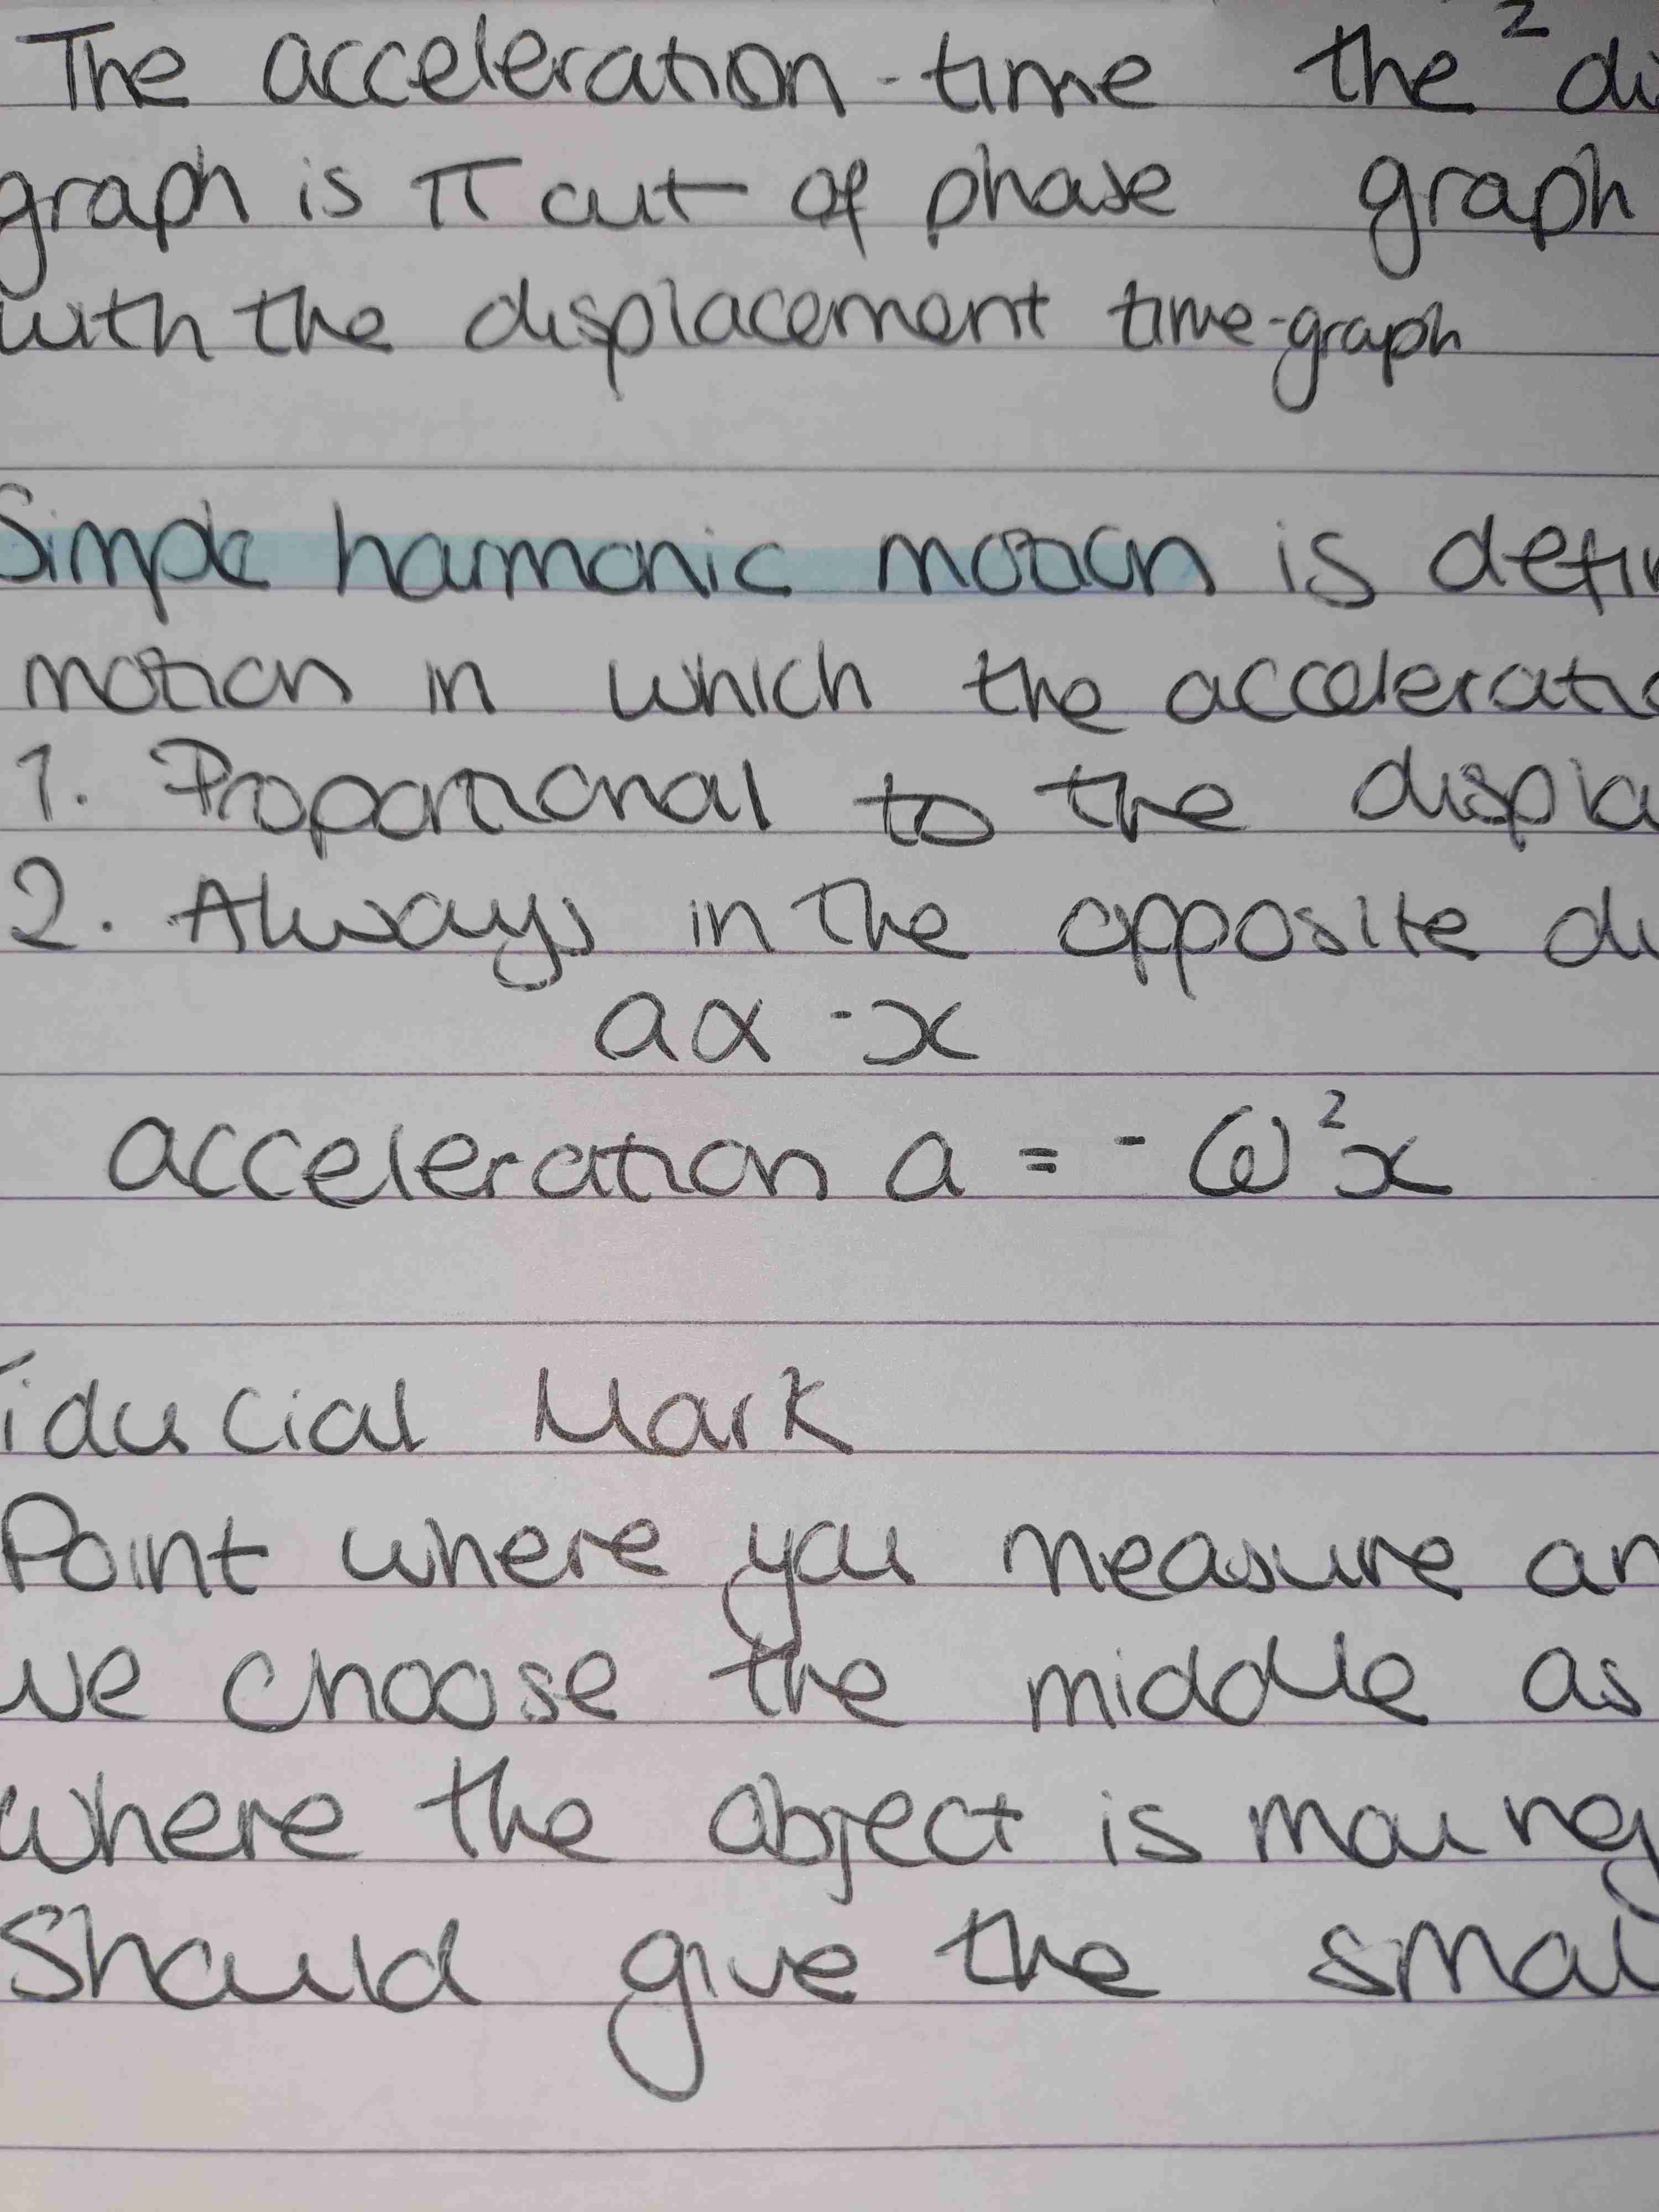 The acceleration-time the 2 di
graph is π out of phase graph
with the displacement time-graph
Simple harmonic motion is defin
motion in which the acceleratio
1. Proportional to the displa
2. Always in the opposite di
a α -x
acceleration a = - ω²x
Fiducial Mark
Point where you measure an
we choose the middle as
where the object is moving
should give the smal